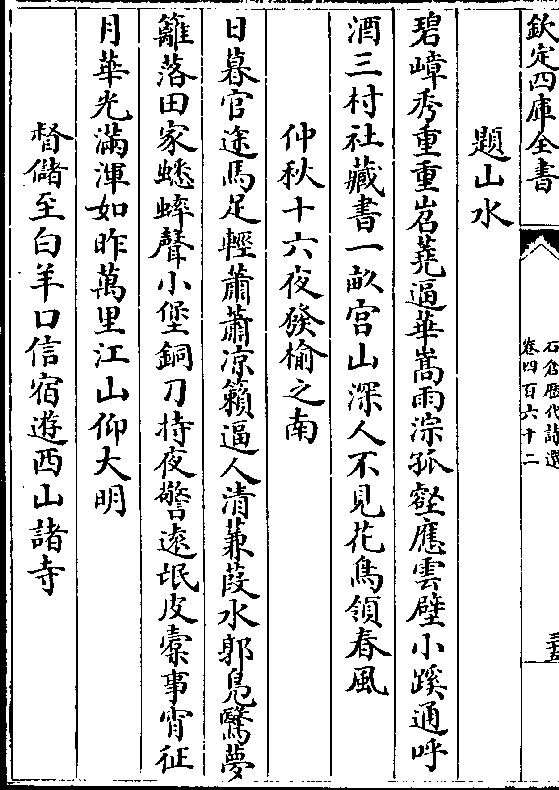 欽定四庫全書
石倉歷代詩選
卷四百六十二
題山水
碧嶂秀重重岧蕘逼華嵩雨淙孤壑應雲壁小蹊通呼
酒三村社藏書一畝宫山深人不見花鳥領春風
仲秋十六夜發榆之南
日暮官途馬足輕蕭蕭凉籟逼人清蒹葭水郭鳬驚夢
籬落田家蟋蟀聲小堡銅刀持夜警遠氓皮橐事宵征
月華光滿渾如昨萬里江山仰大明
督儲至白羊口信宿遊西山諸寺